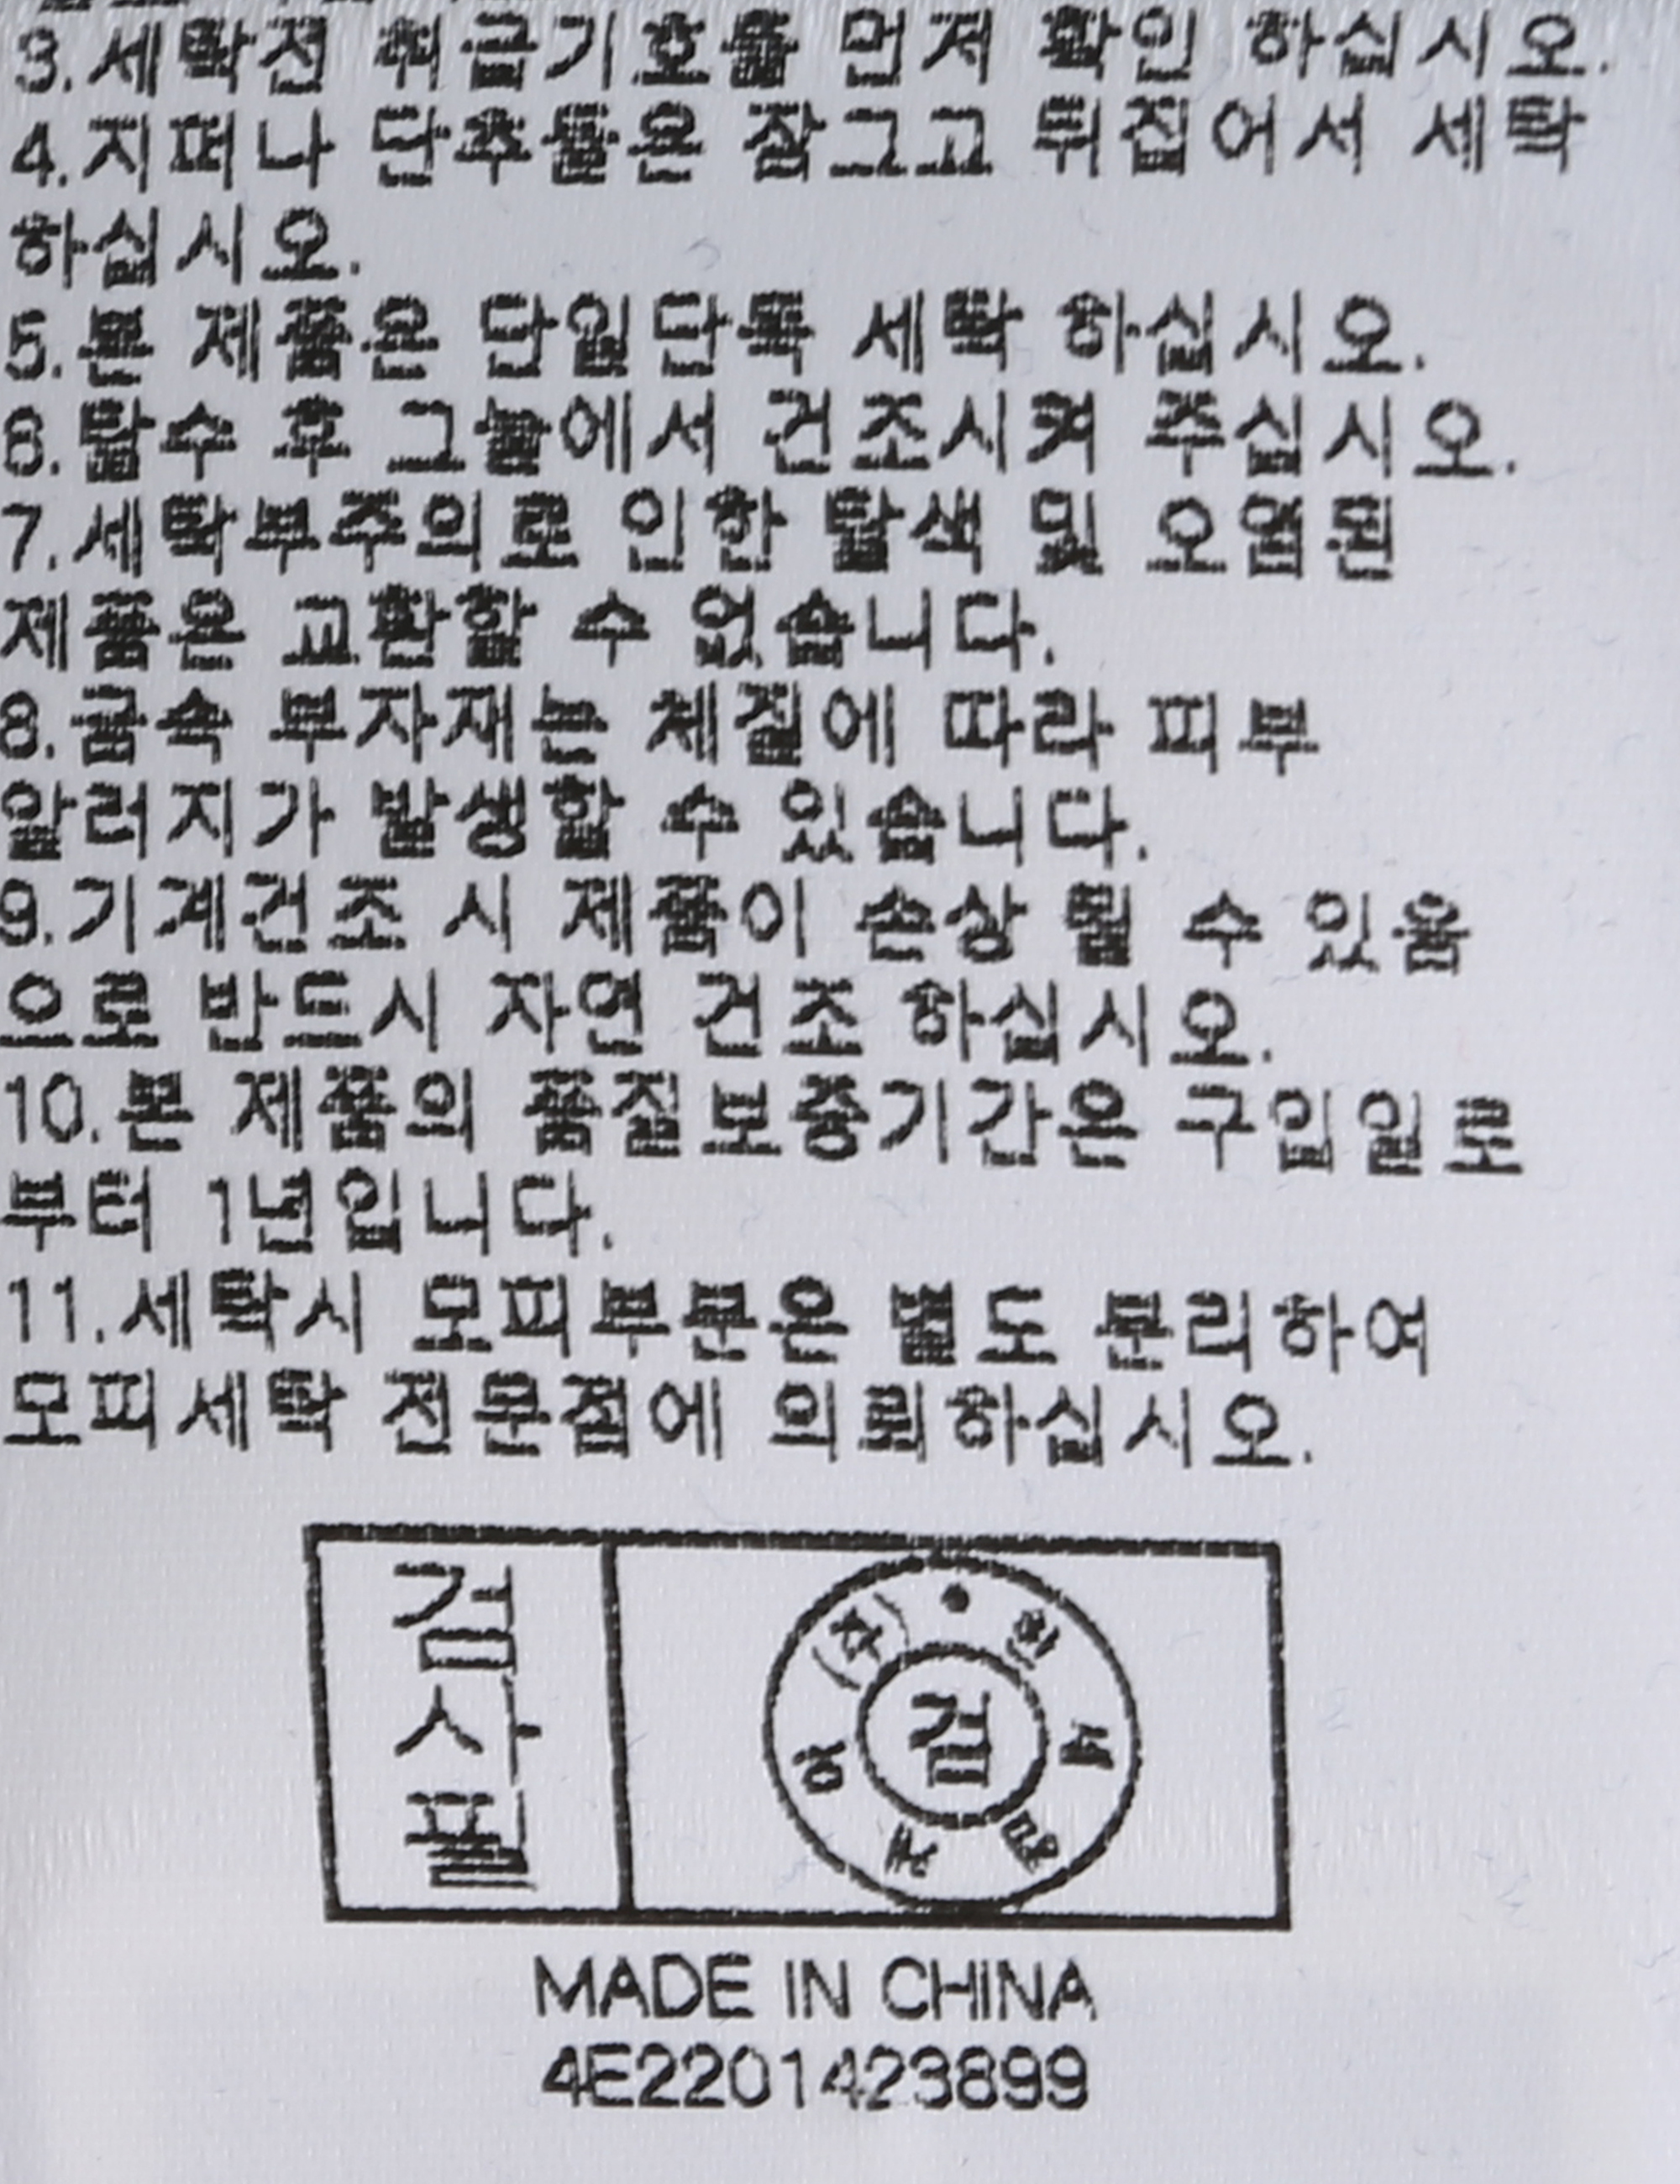 3.세탁전 취급기호를 먼저 확인 하십시오.
4.지퍼나 단추들은 잠그고 뒤집어서 세탁
하십시오.
5.본 제품은 단일단독 세탁 하십시오.
6.탈수 후 그늘에서 건조시켜 주십시오.
7.세탁부주의로 인한 탈색 및 오염된
제품은 교환할 수 없습니다.
8.금속 부자재는 체질에 따라 피부
알러지가 발생할 수 있습니다.
9.기계건조 시 제품이 손상 될 수 있음
으로 반드시 자연 건조 하십시오.
10.본 제품의 품질보증기간은 구입일로
부터 1년입니다.
11.세탁시 모피부분은 별도 분리하여
모피세탁 전문점에 의뢰하십시오.
검
사
필
검
MADE IN CHINA
4E2201423899